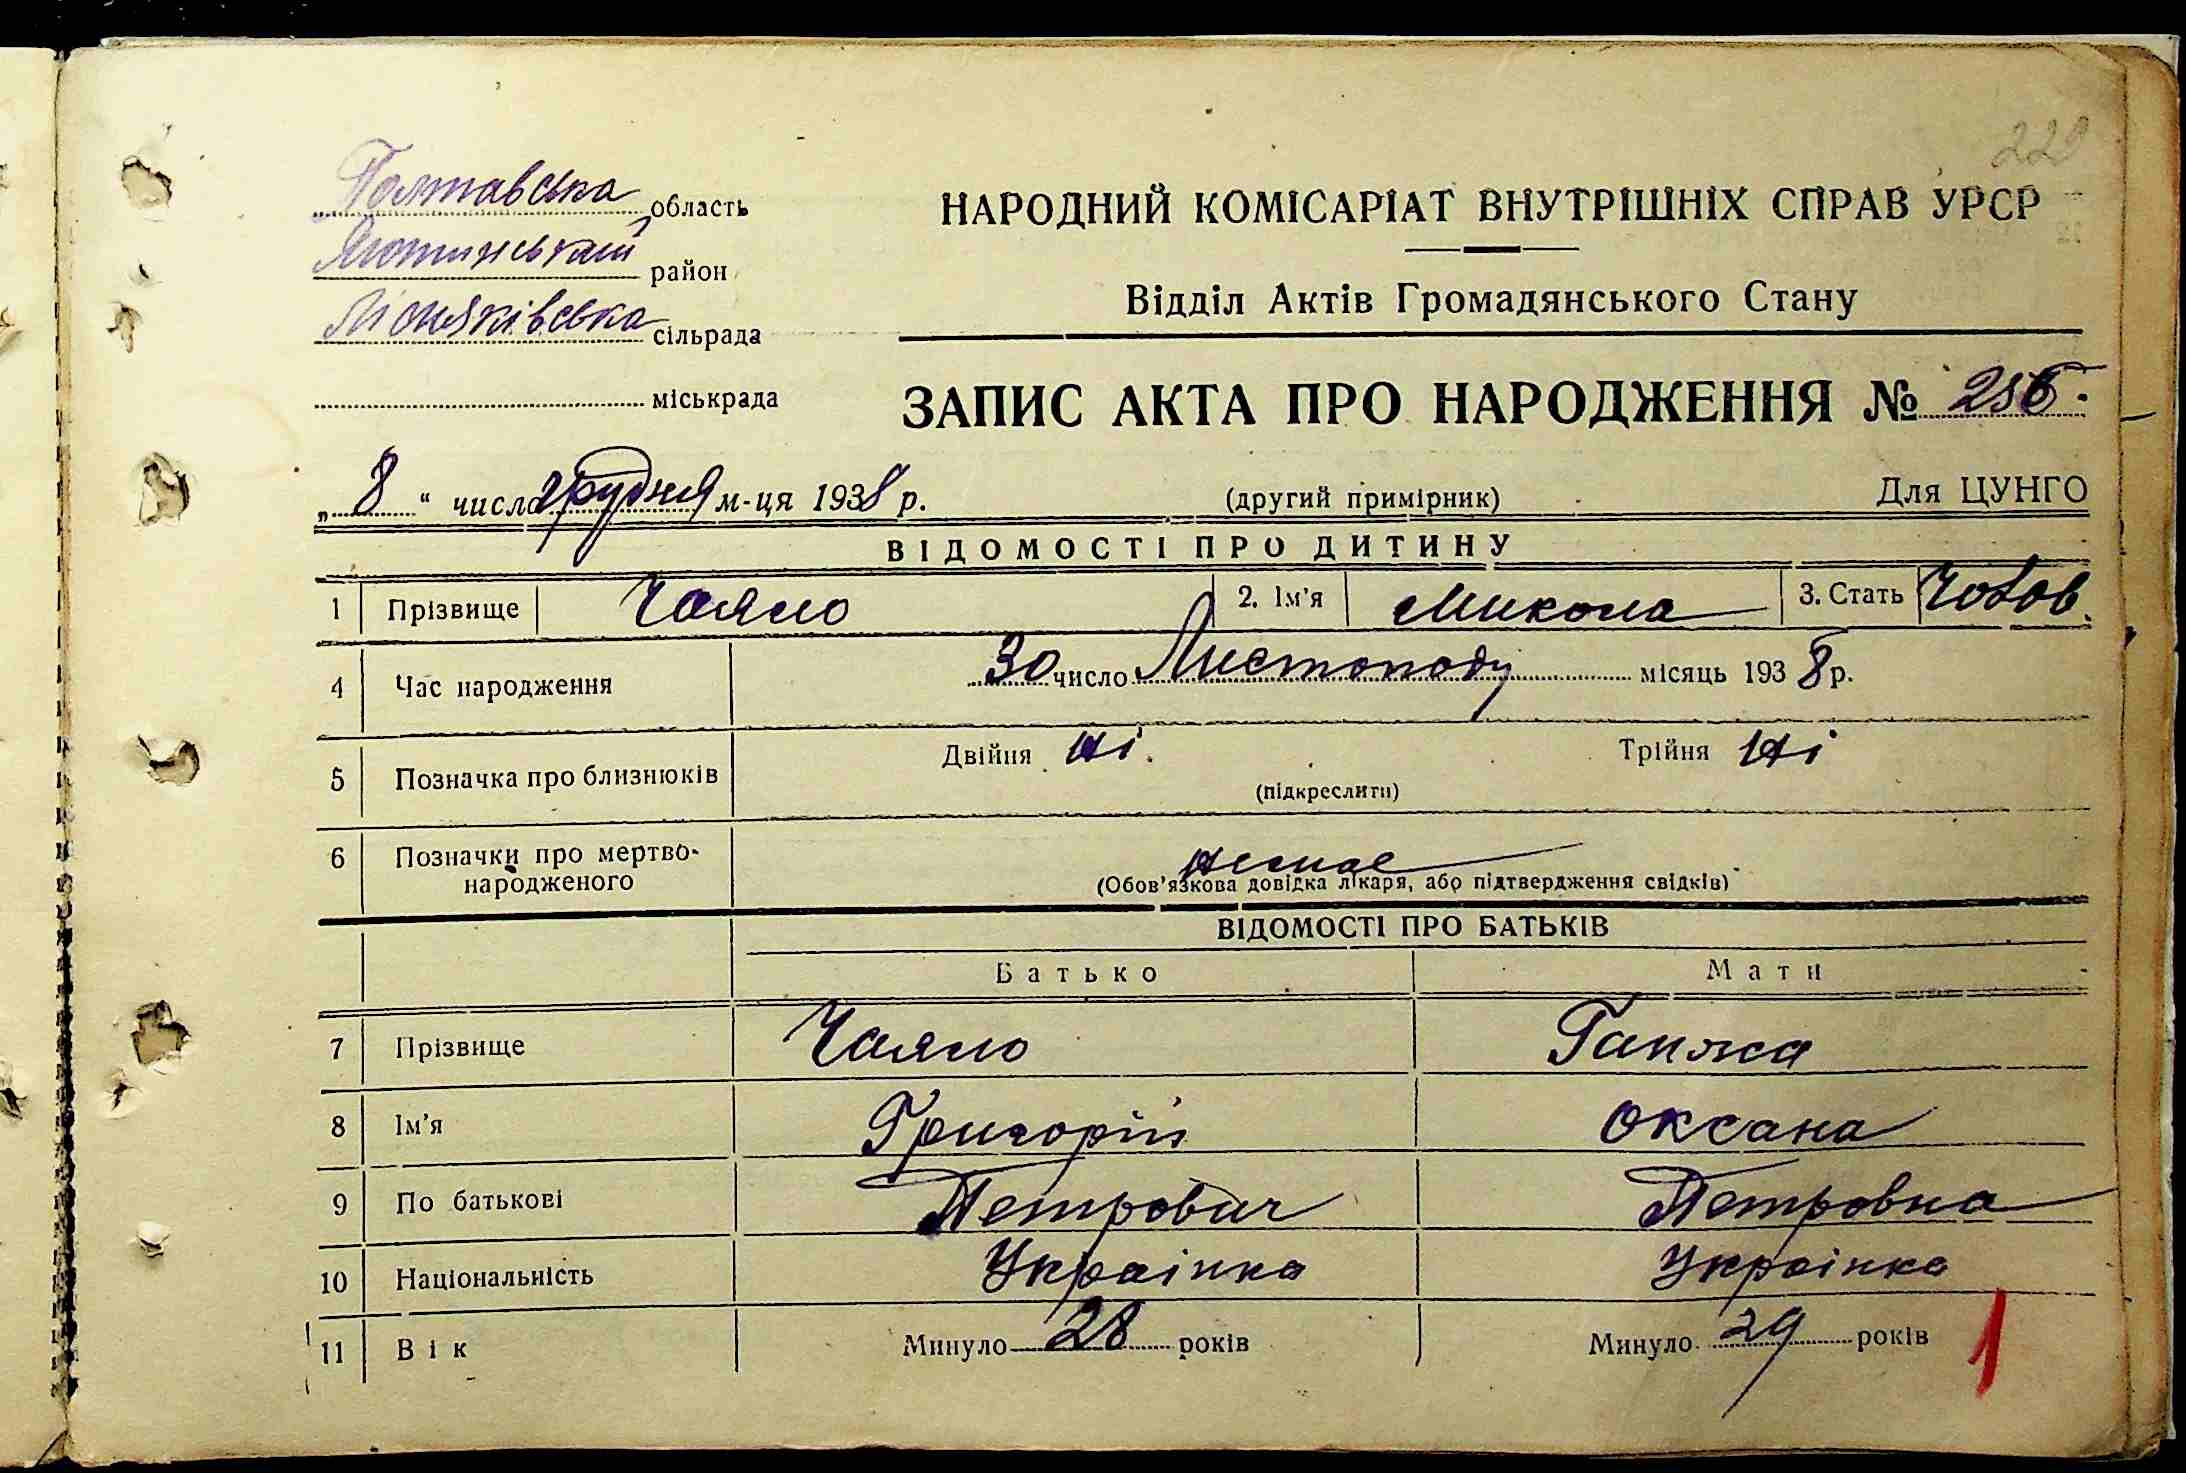 220
Полтавська область
Яготинський район
Лісняківська сільрада
міськрада
НАРОДНИЙ КОМІСАРІАТ ВНУТРІШНІХ СПРАВ УРСР
Відділ Актів Громадянського Стану
ЗАПИС АКТА ПРО НАРОДЖЕННЯ №
„ 8 " число грудня м-ця 1938 р. (другий примірник) Для ЦУНГО
ВІДОМОСТІ ПРО ДИТИНУ
1 Прізвище Чаяло 2. Ім'я Микола 3. Стать Чолов.
4 Час народження 30 число Листопаду місяць 1938 р.
5 Позначка про близнюків Двійня ні. Трійня ні
(підкреслити)
6 Позначки про мертво-
народженого немає
(Обов'язкова довідка лікаря, або підтвердження свідків)
ВІДОМОСТІ ПРО БАТЬКІВ
Батько Мати
7 Прізвище Чаяло Ганжа
8 Ім'я Григорій Оксана
9 По батькові Петрович Петровна
10 Національність Українка Українка
11 Вік Минуло 28 років Минуло 29 років
1